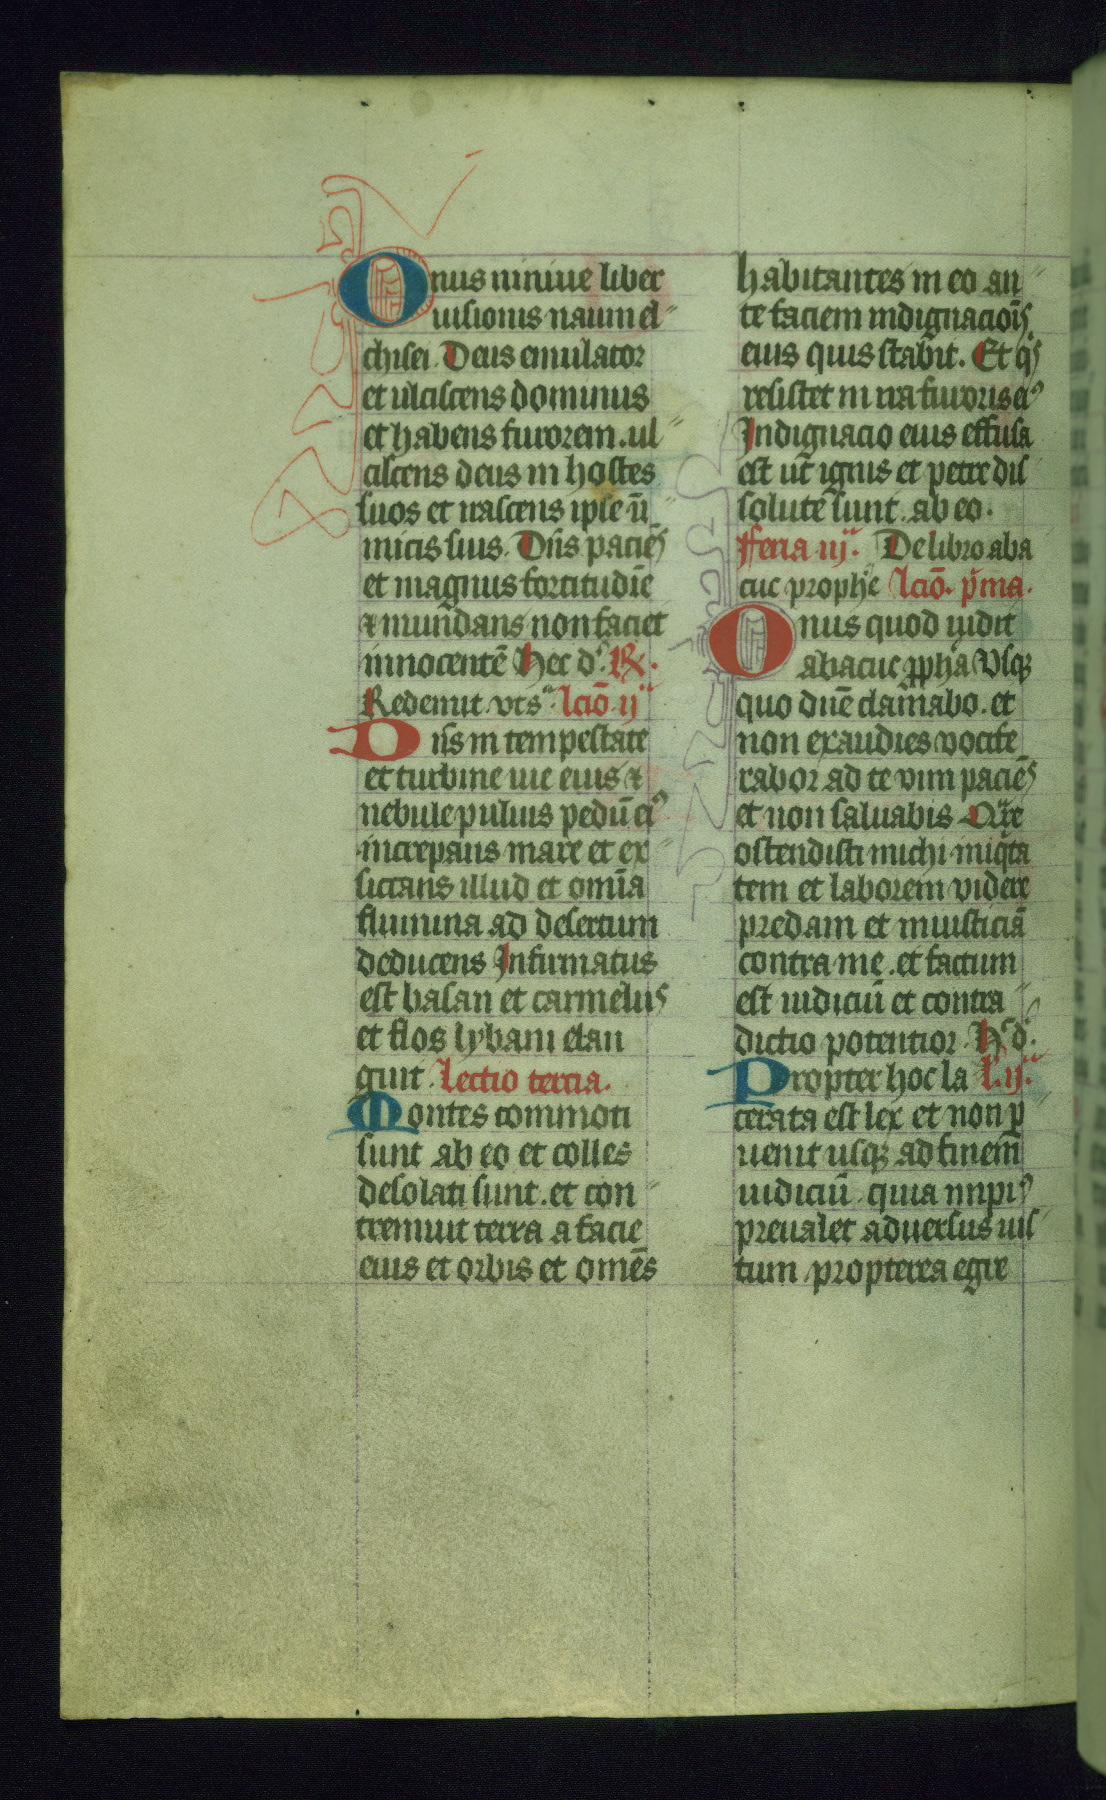 Onus niniue liber
uisionis naum el
chisei. Deus emulator
et ulciscens dominus
et habens furorem. ul
ciscens deus in hostes
suos et irascens ipse ini
micis suis. Dn̄s paciēs
et magnus fortitudīe
⁊ mundans non faciet
innocentē Hec dꝰ. ℟.
Redemit. vts. lcıō ij
Dn̄s in tempestate
et turbine uie eius ⁊
nebule puluis pedū eiꝰ
increpans mare et ex
siccans illud et omīa
flumina ad desertum
deducens Infirmatus
est basan et carmelus
et flos lybani elan
guit. Lectio tercia.
Montes commoti
sunt ab eo et colles
desolati sunt. et con
tremuit terra a facie
eius et orbis et omēs
habitantes in eo an
te faciem indignacioīs
eius quis stabit. Et qͥs
resistet in ira furoris eiꝰ
Indignacio eius effusa
est ut ignis et petre dis
solute sunt. ab eo.
Feria iij. De libro aba
cuc prophe lcıō. pͥma.
Onus quod uidit
abacuc ꝓpha Vsqꝫ
quo dn̄e clamabo. et
non exaudies vocife
rabor ad te vim paciēs
et non saluabis Qͣre
ostendisti michi iniqͥta
tem et laborem videre
predam et iniusticiā
contra me. et factum
est iudiciū et contra
dictio potentior. Hͨ dꝰ.
Propter hoc la L. ij.
cerata est lex et non ꝑ
uenit usqꝫ ad finem
iudiciū. quia impiꝰ
preualet aduersus ius
tum propterea egre